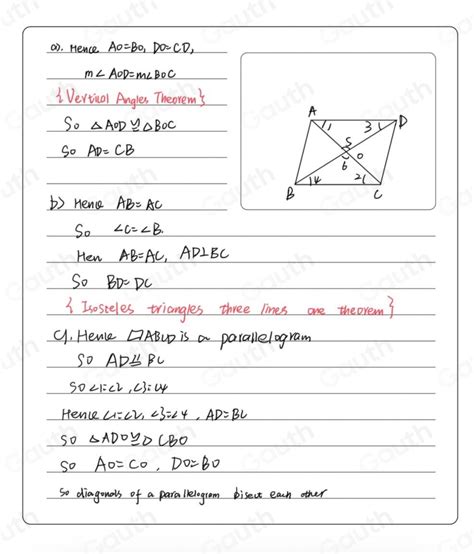 a). Hence AO=BO, DO=CO,
m∠AOD=m∠BOC
{Vertical Angles Theorem}
So △AOD≌△BOC
So AD=CB
A D
1 3
5
O
6
4 2
B C
b) Hence AB=AC
So ∠C=∠B.
Hen AB=AC, AD⊥BC
So BD=DC
{Isosteles triangles three lines one theorem}
C), Hence ▱ABCD is a parallelogram
So AD BC
So ∠1=∠2, ∠3=∠4
Hence ∠1=∠2, ∠3=∠4, AD=BC
So △ADO≌△CBO
So AO=CO, DO=BO
So diagonals of a parallelogram bisect each other
Gauth